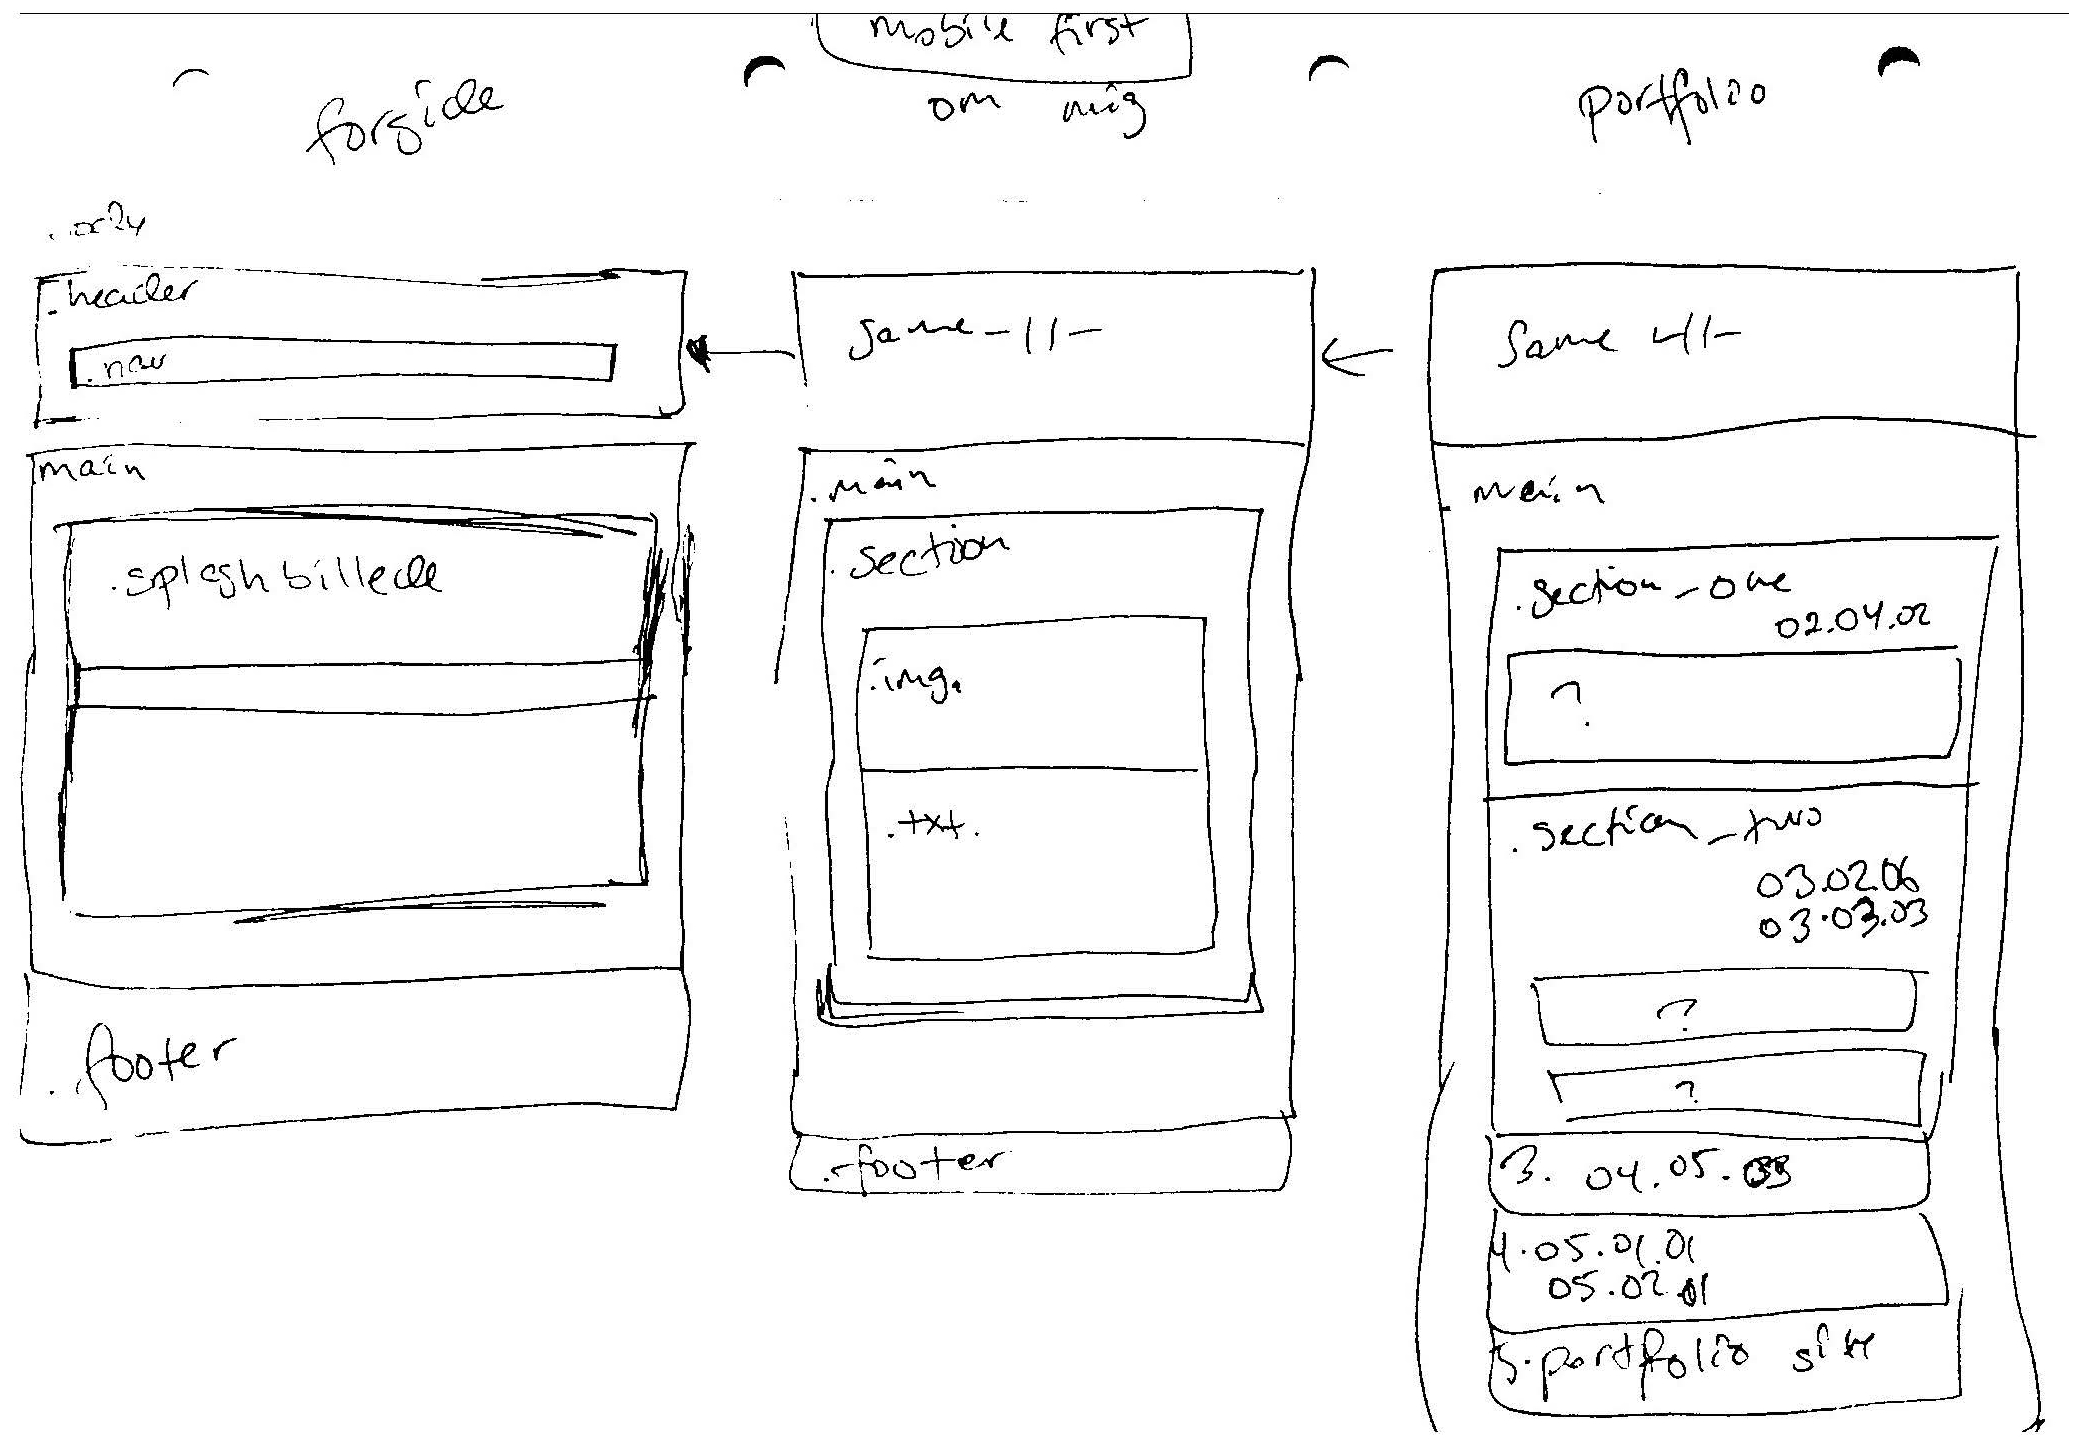 mobile first
forside
om mig
portfolio
.header
.nav
main
.splashbillede
.footer
Same -11-
.main
.section
.img.
.txt.
.footer
Same -11-
.main
.section_one
02.04.02
?
.section_two
03.02.06
03.03.03
?
?
3. 04.05.03
4. 05.01.01
05.02.01
5. portfolio site